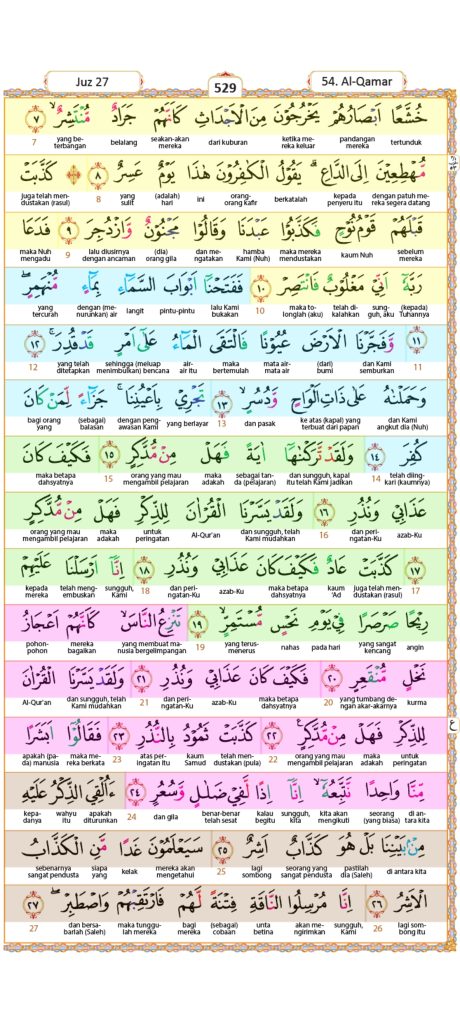 Juz 27
529
54. Al-Qamar
خُشَّعًا اَبْصَارُهُمْ يَخْرُجُوْنَ مِنَ الْاَجْدَاثِ كَاَنَّهُمْ جَرَادٌ مُّنْتَشِرٌۙ ٧
tertunduk pandangan mereka ketika mereka keluar dari kuburan seakan-akan mereka belalang yang beterbangan 7
مُّهْطِعِيْنَ اِلَى الدَّاعِۗ يَقُوْلُ الْكٰفِرُوْنَ هٰذَا يَوْمٌ عَسِرٌ ٨ كَذَّبَتْ
dengan patuh mereka segera datang kepada penyeru itu berkatalah orang-orang kafir ini (adalah) hari yang sulit 8 juga telah mendustakan (rasul)
قَبْلَهُمْ قَوْمُ نُوْحٍ فَكَذَّبُوْا عَبْدَنَا وَقَالُوْا مَجْنُوْنٌ وَّازْدُجِرَ ٩ فَدَعَا
sebelum mereka kaum Nuh maka mereka mendustakan hamba Kami (Nuh) dan mengatakan (dia) orang gila lalu diusirnya dengan ancaman 9 maka Nuh mengadu
رَبَّهٗٓ اَنِّيْ مَغْلُوْبٌ فَانْتَصِرْ ١٠ فَفَتَحْنَآ اَبْوَابَ السَّمَاۤءِ بِمَاۤءٍ مُّنْهَمِرٍۖ
(kepada) Tuhannya sungguh, aku telah dikalahkan maka tolonglah (aku) 10 lalu Kami bukakan pintu-pintu langit dengan (menurunkan) air yang tercurah
١١ وَّفَجَّرْنَا الْاَرْضَ عُيُوْنًا فَالْتَقَى الْمَاۤءُ عَلٰٓى اَمْرٍ قَدْ قُدِرَۚ ١٢
11 dan Kami semburkan (dari) bumi mata air-mata air maka bertemulah air-air itu sehingga (meluap menimbulkan) bencana yang telah ditetapkan 12
وَحَمَلْنٰهُ عَلٰى ذَاتِ اَلْوَاحٍ وَّدُسُرٍۙ ١٣ تَجْرِيْ بِاَعْيُنِنَاۚ جَزَاۤءً لِّمَنْ كَانَ
dan Kami angkut dia (Nuh) ke atas (kapal) yang terbuat dari papan dan pasak 13 yang berlayar dengan pengawasan Kami (sebagai) balasan bagi orang yang
كُفِرَ ١٤ وَلَقَدْ تَّرَكْنٰهَآ اٰيَةً فَهَلْ مِنْ مُّدَّكِرٍ ١٥ فَكَيْفَ كَانَ
telah diingkari (kaumnya) 14 dan sungguh, kapal itu telah Kami jadikan sebagai tanda (pelajaran) maka adakah orang yang mau mengambil pelajaran 15 maka betapa dahsyatnya
عَذَابِيْ وَنُذُرِ ١٦ وَلَقَدْ يَسَّرْنَا الْقُرْاٰنَ لِلذِّكْرِ فَهَلْ مِنْ مُّدَّكِرٍ
azab-Ku dan peringatan-Ku 16 dan sungguh, telah Kami mudahkan Al-Qur'an untuk peringatan maka adakah orang yang mau mengambil pelajaran
١٧ كَذَّبَتْ عَادٌ فَكَيْفَ كَانَ عَذَابِيْ وَنُذُرِ ١٨ اِنَّآ اَرْسَلْنَا عَلَيْهِمْ
17 juga telah mendustakan (rasul) kaum 'Ad maka betapa dahsyatnya azab-Ku dan peringatan-Ku 18 sungguh, Kami telah mengembuskan kepada mereka
رِيْحًا صَرْصَرًا فِيْ يَوْمِ نَحْسٍ مُّسْتَمِرٍّۙ ١٩ تَنْزِعُ النَّاسَۙ كَاَنَّهُمْ اَعْجَازُ
angin yang sangat kencang pada hari nahas yang terus-menerus 19 yang membuat manusia bergelimpangan mereka bagaikan pohon-pohon
نَخْلٍ مُّنْقَعِرٍ ٢٠ فَكَيْفَ كَانَ عَذَابِيْ وَنُذُرِ ٢١ وَلَقَدْ يَسَّرْنَا الْقُرْاٰنَ
kurma yang tumbang dengan akar-akarnya 20 maka betapa dahsyatnya azab-Ku dan peringatan-Ku 21 dan sungguh, telah Kami mudahkan Al-Qur'an
لِلذِّكْرِ فَهَلْ مِنْ مُّدَّكِرٍ ٢٢ كَذَّبَتْ ثَمُوْدُ بِالنُّذُرِ ٢٣ فَقَالُوْٓا اَبَشَرًا
untuk peringatan maka adakah orang yang mau mengambil pelajaran 22 telah mendustakan (pula) kaum Samud atas peringatan itu 23 maka mereka berkata apakah (pada) manusia
مِّنَّا وَاحِدًا نَّتَّبِعُهٗٓۙ اِنَّآ اِذًا لَّفِيْ ضَلٰلٍ وَّسُعُرٍ ٢٤ ءَاُلْقِيَ الذِّكْرُ عَلَيْهِ
di antara kita seorang (yang biasa) kita akan mengikuti sungguh, kita kalau begitu benar-benar telah sesat dan gila 24 apakah diturunkan wahyu itu kepadanya
مِنْۢ بَيْنِنَا بَلْ هُوَ كَذَّابٌ اَشِرٌ ٢٥ سَيَعْلَمُوْنَ غَدًا مَّنِ الْكَذَّابُ
di antara kita pastilah dia (Saleh) seorang yang sangat pendusta lagi sombong 25 mereka akan mengetahui kelak siapa yang sebenarnya sangat pendusta
الْاَشِرُ ٢٦ اِنَّا مُرْسِلُوا النَّاقَةِ فِتْنَةً لَّهُمْ فَارْتَقِبْهُمْ وَاصْطَبِرْۖ ٢٧
lagi sombong itu 26 sungguh, Kami akan mengirimkan unta betina (sebagai) cobaan bagi mereka maka tunggulah mereka dan bersabarlah (Saleh) 27